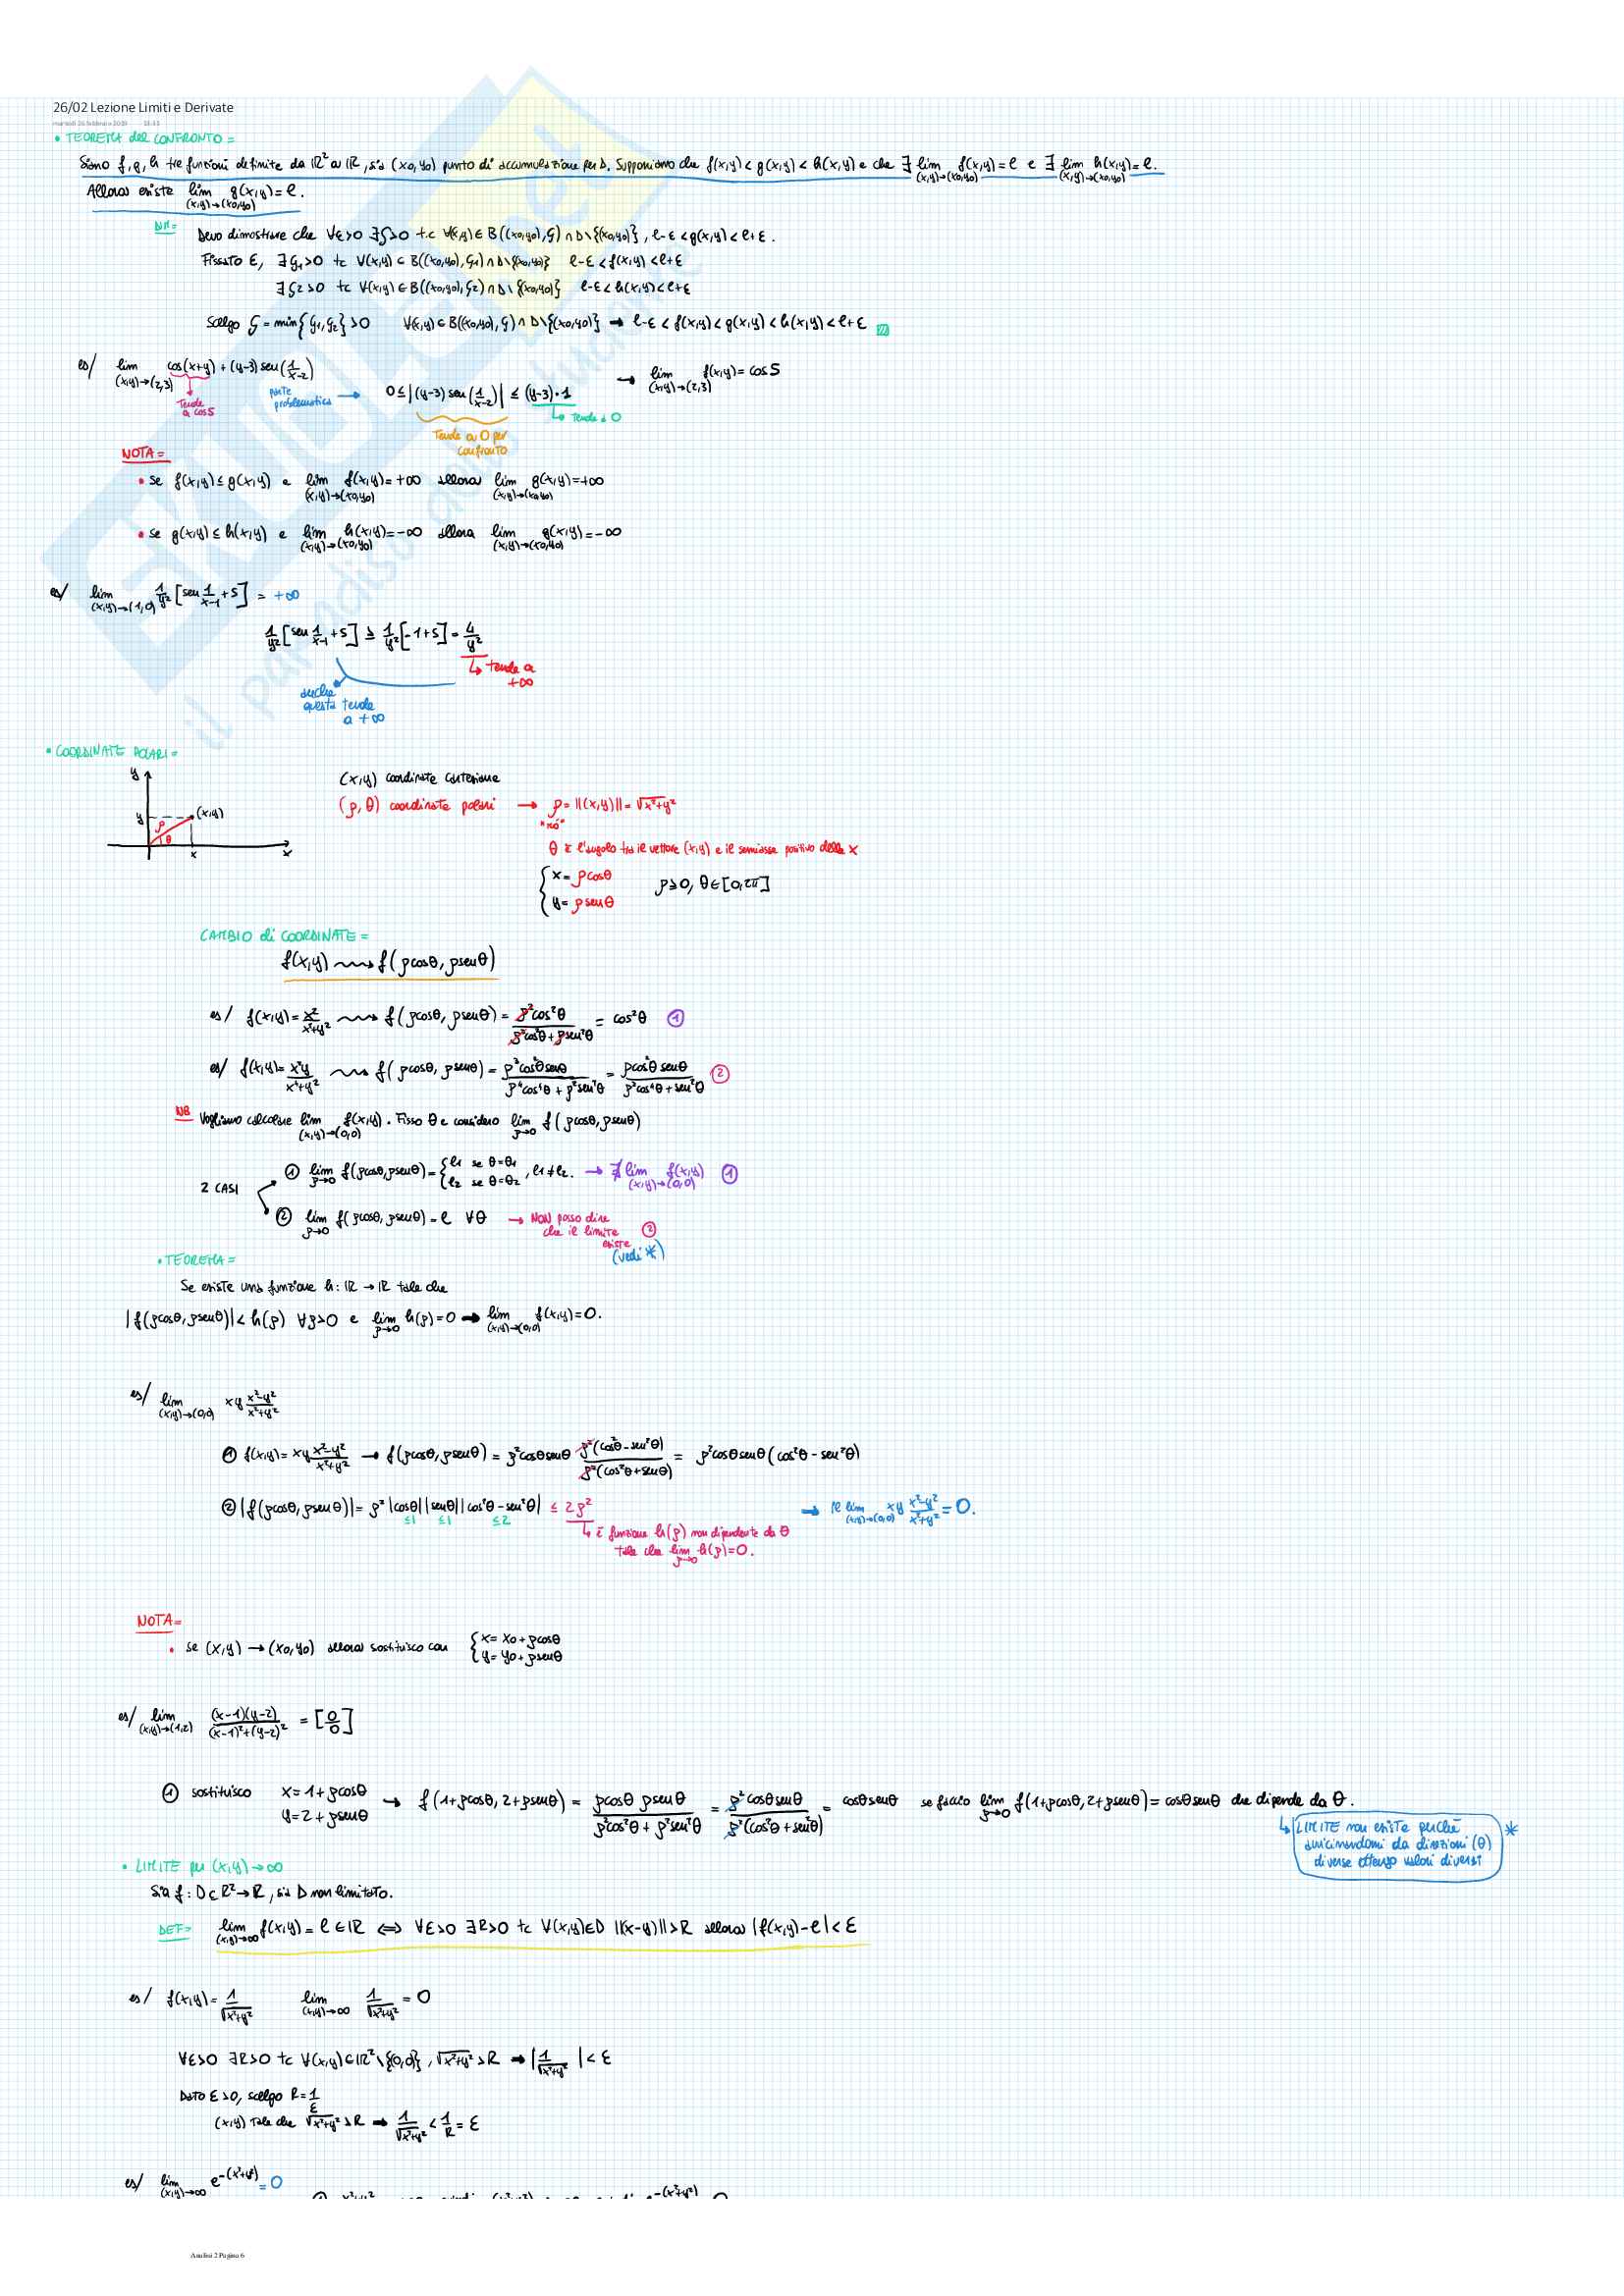 26/02 Lezione Limiti e Derivate
martedì 26 febbraio 2019
• TEOREMA del CONFRONTO =
Siano f, g, h tre funzioni definite da ℝ² a ℝ, sia (x0,y0) punto di accumulazione per D. Supponiamo che f(x,y) < g(x,y) < h(x,y) e che ∃ lim (x,y)→(x0,y0) f(x,y) = ℓ e ∃ lim (x,y)→(x0,y0) h(x,y) = ℓ.
Allora esiste lim (x,y)→(x0,y0) g(x,y) = ℓ.
DM= Devo dimostrare che ∀ε>0 ∃ρ>0 tc ∀(x,y) ∈ B((x0,y0),ρ) ∩ D\{(x0,y0)}, ℓ-ε < g(x,y) < ℓ+ε.
Fissato ε, ∃ρ1>0 tc ∀(x,y) ∈ B((x0,y0),ρ1) ∩ D\{(x0,y0)} ℓ-ε < f(x,y) < ℓ+ε
∃ρ2>0 tc ∀(x,y) ∈ B((x0,y0),ρ2) ∩ D\{(x0,y0)} ℓ-ε < h(x,y) < ℓ+ε
Scelgo ρ = min{ρ1,ρ2} > 0 ∀(x,y) ∈ B((x0,y0),ρ) ∩ D\{(x0,y0)} → ℓ-ε < f(x,y) < g(x,y) < h(x,y) < ℓ+ε
es/ lim (x,y)→(2,3) cos(x+y) + (y-3) sen(1/(x-2))
Tende a cos5
parte problematica → 0 ≤ |(y-3) sen(1/(x-2))| ≤ (y-3)·1 → lim (x,y)→(2,3) f(x,y) = cos5
↳ tende a 0
Tende a 0 per confronto
NOTA =
• Se f(x,y) ≤ g(x,y) e lim (x,y)→(x0,y0) f(x,y) = +∞ allora lim (x,y)→(x0,y0) g(x,y) = +∞
• se g(x,y) ≤ h(x,y) e lim (x,y)→(x0,y0) h(x,y) = -∞ allora lim (x,y)→(x0,y0) g(x,y) = -∞
es/ lim (x,y)→(1,0) 1/y² [sen 1/(x-1) + 5] = +∞
1/y² [sen 1/(x-1) + 5] ≥ 1/y² [-1+5] = 4/y²
↳ tende a +∞
anche questa tende a +∞
• COORDINATE POLARI =
y
y
(x,y)
ρ
θ
x
x
(x,y) coordinate cartesiane
(ρ, θ) coordinate polari → ρ = ||(x,y)|| = √x²+y²
"rò"
θ è l'angolo tra il vettore (x,y) e il semiasse positivo delle x
{ x = ρcosθ
y = ρsenθ ρ≥0, θ∈[0,2π]
CAMBIO di COORDINATE =
f(x,y) ⟿ f(ρcosθ, ρsenθ)
es/ f(x,y) = x²/(x²+y²) ⟿ f(ρcosθ, ρsenθ) = ρ²cos²θ/(ρ²cos²θ + ρ²sen²θ) = cos²θ ①
es/ f(x,y) = x²y/(x⁴+y²) ⟿ f(ρcosθ, ρsenθ) = ρ³cos²θsenθ/(ρ⁴cos⁴θ + ρ²sen²θ) = ρcos²θ senθ/(ρ²cos⁴θ + sen²θ) ②
NB Vogliamo calcolare lim (x,y)→(0,0) f(x,y). Fisso θ e considero lim ρ→0 f(ρcosθ, ρsenθ)
2 CASI
① lim ρ→0 f(ρcosθ, ρsenθ) = { ℓ1 se θ=θ1 ℓ2 se θ=θ2, ℓ1≠ℓ2. → ∄ lim (x,y)→(0,0) f(x,y) ①
② lim ρ→0 f(ρcosθ, ρsenθ) = ℓ ∀θ → NON posso dire che il limite esiste ② (vedi *)
• TEOREMA =
Se esiste una funzione h: ℝ → ℝ tale che
|f(ρcosθ, ρsenθ)| < h(ρ) ∀ρ>0 e lim ρ→0 h(ρ) = 0 → lim (x,y)→(0,0) f(x,y) = 0.
es/ lim (x,y)→(0,0) xy (x²-y²)/(x²+y²)
① f(x,y) = xy (x²-y²)/(x²+y²) → f(ρcosθ, ρsenθ) = ρ²cosθsenθ ρ²(cos²θ - sen²θ)/ρ²(cos²θ + senθ) = ρ²cosθsenθ(cos²θ - sen²θ)
② |f(ρcosθ, ρsenθ)| = ρ² |cosθ| |senθ| |cos²θ - sen²θ| ≤ 2ρ² → il lim (x,y)→(0,0) xy (x²-y²)/(x²+y²) = 0.
≤1 ≤1 ≤2
↳ è funzione h(ρ) non dipendente da θ
tale che lim ρ→0 h(ρ) = 0.
NOTA =
• se (x,y) → (x0,y0) allora sostituisco con { x = x0 + ρcosθ
y = y0 + ρsenθ
es/ lim (x,y)→(1,2) (x-1)(y-2)/((x-1)²+(y-2)²) = [0/0]
① sostituisco x = 1+ρcosθ y = 2+ρsenθ → f(1+ρcosθ, 2+ρsenθ) = ρcosθ ρsenθ/(ρ²cos²θ + ρ²sen²θ) = ρ²cosθsenθ/ρ²(cos²θ + sen²θ) = cosθsenθ se faccio lim ρ→0 f(1+ρcosθ, 2+ρsenθ) = cosθsenθ che dipende da θ.
↳ LIMITE non esiste perché
avvicinandomi da direzioni (θ)
diverse ottengo valori diversi
*
• LIMITE per (x,y) → ∞
Sia f: D⊂ℝ² → ℝ, sia D non limitato.
DEF= lim (x,y)→∞ f(x,y) = ℓ∈ℝ ⟺ ∀ε>0 ∃R>0 tc ∀(x,y)∈D ||(x-y)|| > R allora |f(x,y) - ℓ| < ε
es/ f(x,y) = 1/√x²+y² lim (x,y)→∞ 1/√x²+y² = 0
∀ε>0 ∃R>0 tc ∀(x,y)∈ℝ²\{0,0)}, √x²+y² > R → |1/√x²+y²| < ε
Dato ε>0, scelgo R = 1/ε
(x,y) tale che √x²+y² > R → 1/√x²+y² < 1/R = ε
es/ lim (x,y)→∞ e^-(x²+y²) = 0
Analisi 2 Pagina 6